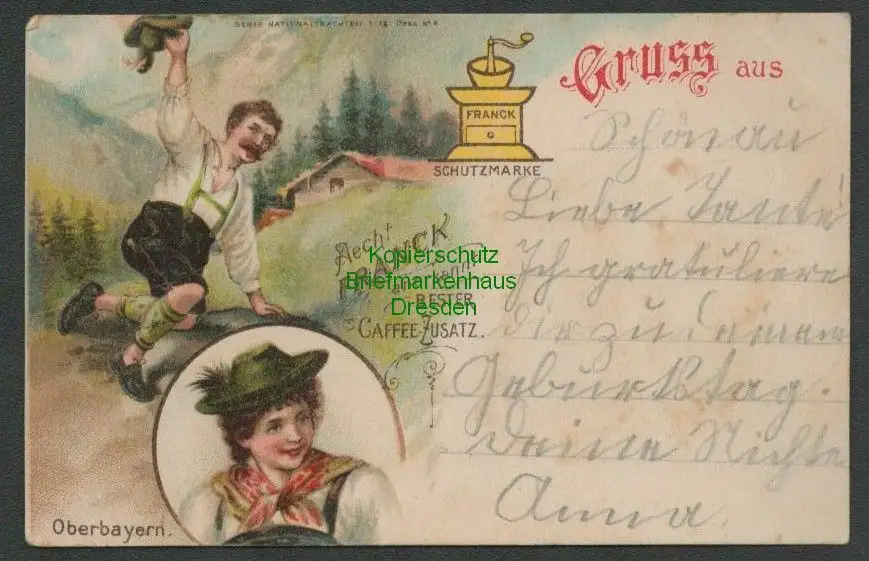 SERIE NATIONALTRACHTEN
Gruss aus
FRANCK
SCHUTZMARKE
Schönau
Liebe Tante
Ich gratuliere
dir zu deinem
Geburtstag.
Deine Nichte
Anna.
Aecht
FRANCK
anerkannt
BESTER
CAFFEE-ZUSATZ.
Kopierschutz
Briefmarkenhaus
Dresden
Oberbayern.